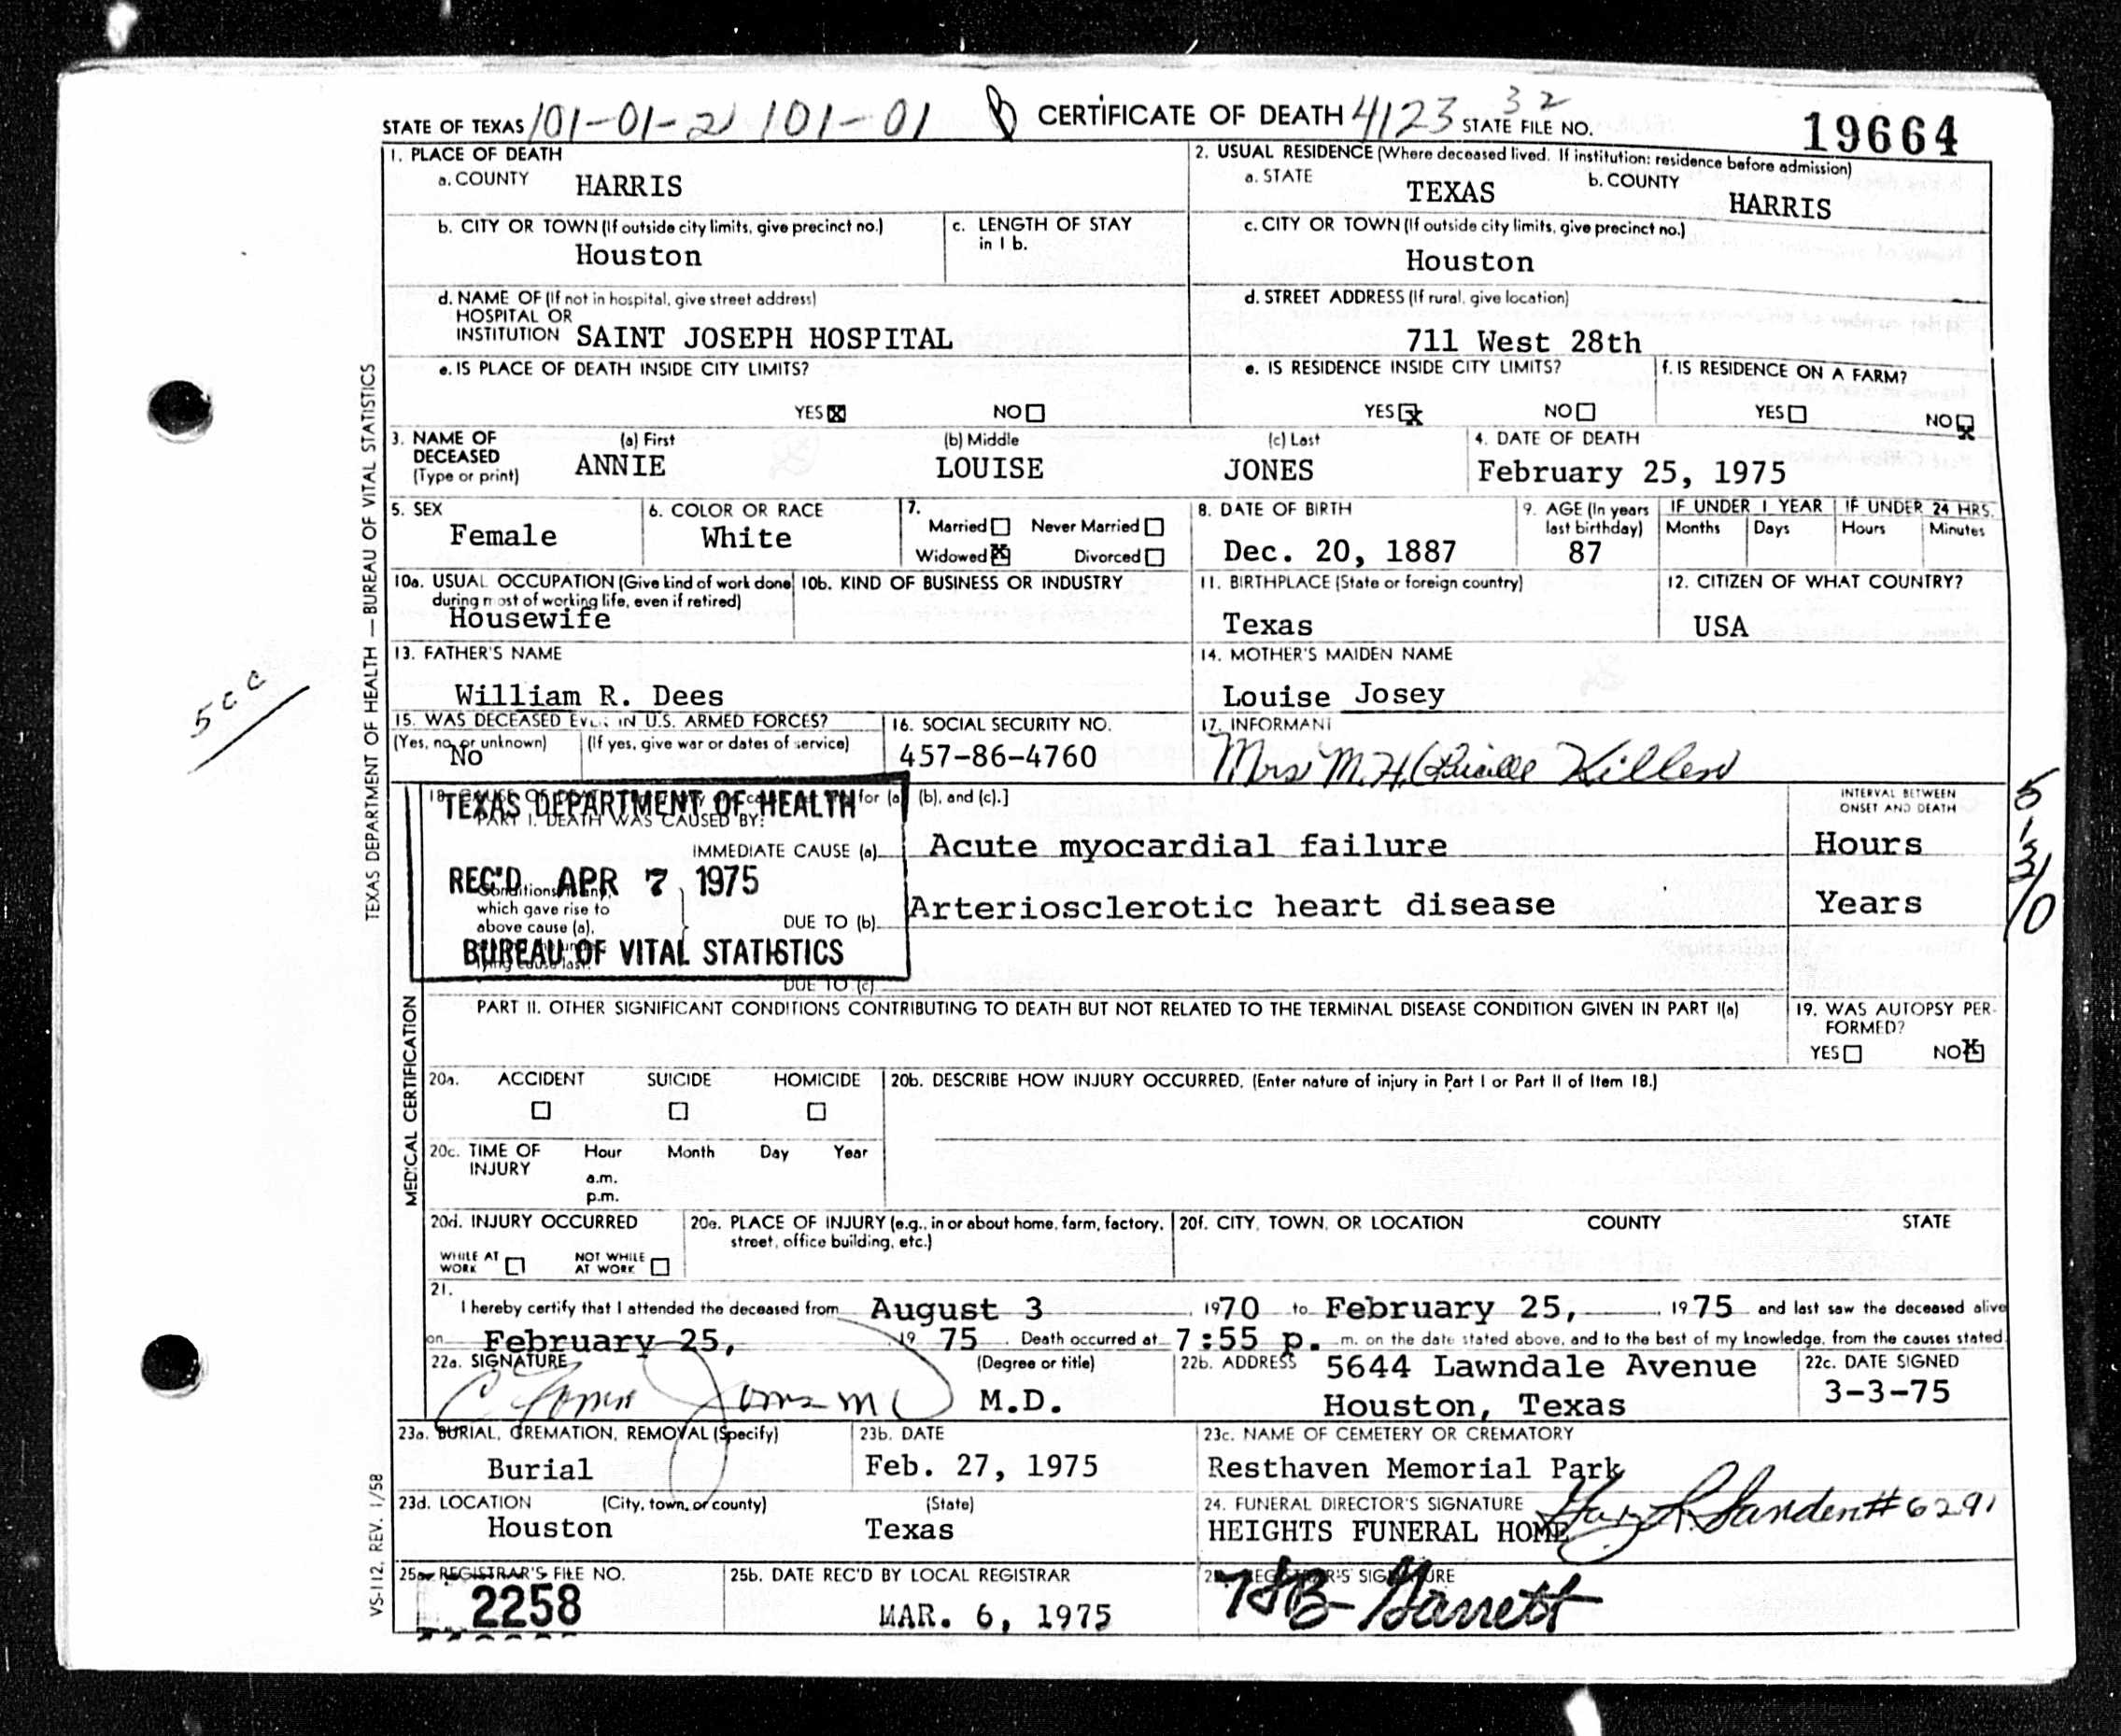 STATE OF TEXAS 101-01-2 101-01 B CERTIFICATE OF DEATH 4123 32 STATE FILE NO. 19664
1. PLACE OF DEATH
a. COUNTY HARRIS
2. USUAL RESIDENCE (Where deceased lived. If institution: residence before admission)
a. STATE TEXAS b. COUNTY HARRIS
b. CITY OR TOWN (If outside city limits, give precinct no.)
Houston
c. LENGTH OF STAY
in 1 b.
c. CITY OR TOWN (If outside city limits, give precinct no.)
Houston
d. NAME OF (If not in hospital, give street address)
HOSPITAL OR
INSTITUTION SAINT JOSEPH HOSPITAL
d. STREET ADDRESS (If rural, give location)
711 West 28th
e. IS PLACE OF DEATH INSIDE CITY LIMITS?
YES NO
e. IS RESIDENCE INSIDE CITY LIMITS?
YES NO
f. IS RESIDENCE ON A FARM?
YES NO
3. NAME OF
DECEASED
(Type or print)
(a) First
ANNIE
(b) Middle
LOUISE
(c) Last
JONES
4. DATE OF DEATH
February 25, 1975
5. SEX
Female
6. COLOR OR RACE
White
7.
Married Never Married
Widowed Divorced
8. DATE OF BIRTH
Dec. 20, 1887
9. AGE (In years
last birthday)
87
IF UNDER 1 YEAR
Months Days
IF UNDER 24 HRS.
Hours Minutes
10a. USUAL OCCUPATION (Give kind of work done
during most of working life, even if retired)
Housewife
10b. KIND OF BUSINESS OR INDUSTRY
11. BIRTHPLACE (State or foreign country)
Texas
12. CITIZEN OF WHAT COUNTRY?
USA
13. FATHER'S NAME
William R. Dees
14. MOTHER'S MAIDEN NAME
Louise Josey
15. WAS DECEASED IN U.S. ARMED FORCES?
(Yes, no, or unknown) (If yes, give war or dates of service)
No
16. SOCIAL SECURITY NO.
457-86-4760
17. INFORMANT
Mrs M.H. Killen
for (a) (b), and (c).]
TEXAS DEPARTMENT OF HEALTH
PART I. DEATH WAS CAUSED BY:
INTERVAL BETWEEN
ONSET AND DEATH
IMMEDIATE CAUSE (a) Acute myocardial failure Hours
REC'D APR 7 1975
Conditions
which gave rise to
above cause (a),
DUE TO (b) Arteriosclerotic heart disease Years
BUREAU OF VITAL STATISTICS
lying cause last.
DUE TO (c)
PART II. OTHER SIGNIFICANT CONDITIONS CONTRIBUTING TO DEATH BUT NOT RELATED TO THE TERMINAL DISEASE CONDITION GIVEN IN PART I(a)
19. WAS AUTOPSY PER-
FORMED?
YES NO
20a. ACCIDENT SUICIDE HOMICIDE
20b. DESCRIBE HOW INJURY OCCURRED. (Enter nature of injury in Part I or Part II of Item 18.)
20c. TIME OF
INJURY
Hour Month Day Year
a.m.
p.m.
20d. INJURY OCCURRED
WHILE AT
WORK
NOT WHILE
AT WORK
20e. PLACE OF INJURY (e.g., in or about home, farm, factory,
street, office building, etc.)
20f. CITY, TOWN, OR LOCATION COUNTY STATE
21.
I hereby certify that I attended the deceased from August 3 1970 to February 25, 1975 and last saw the deceased alive
on February 25, 19 75. Death occurred at 7:55 p. m. on the date stated above, and to the best of my knowledge, from the causes stated.
22a. SIGNATURE
(Degree or title)
M.D.
22b. ADDRESS 5644 Lawndale Avenue
Houston, Texas
22c. DATE SIGNED
3-3-75
23a. BURIAL, CREMATION, REMOVAL (Specify)
Burial
23b. DATE
Feb. 27, 1975
23c. NAME OF CEMETERY OR CREMATORY
Resthaven Memorial Park
23d. LOCATION (City, town, or county) (State)
Houston Texas
24. FUNERAL DIRECTOR'S SIGNATURE
HEIGHTS FUNERAL HOME #6291
25a. REGISTRAR'S FILE NO.
2258
25b. DATE REC'D BY LOCAL REGISTRAR
MAR. 6, 1975
REGISTRAR'S SIGNATURE
Garrett
TEXAS DEPARTMENT OF HEALTH — BUREAU OF VITAL STATISTICS
MEDICAL CERTIFICATION
VS-112, REV. 1/58
5cc